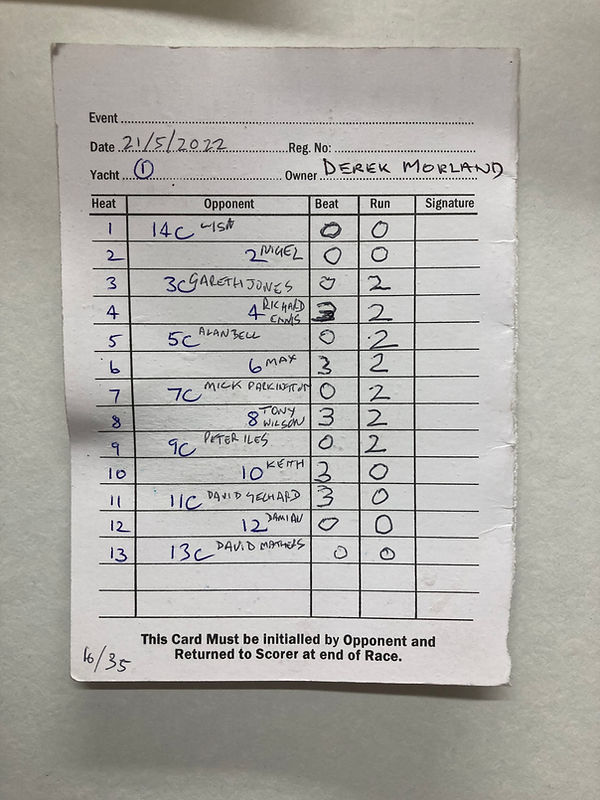 Event
Date 21/5/2022 Reg. No:
Yacht 1 Owner DEREK MORLAND
Heat Opponent Beat Run Signature
1 14C LISA 0 0
2 2 NIGEL 0 0
3 3C GARETH JONES 0 2
4 4 RICHARD ENNIS 3 2
5 5C ALAN BELL 0 2
6 6 MAX 3 2
7 7C MICK PARKINGTON 0 2
8 8 TONY WILSON 3 2
9 9C PETER ILES 0 2
10 10 KEITH 3 0
11 11C DAVID 3 0
12 12 DAMIAN 0 0
13 13C DAVID MATHERS 0 0
This Card Must be initialled by Opponent and
Returned to Scorer at end of Race.
/35